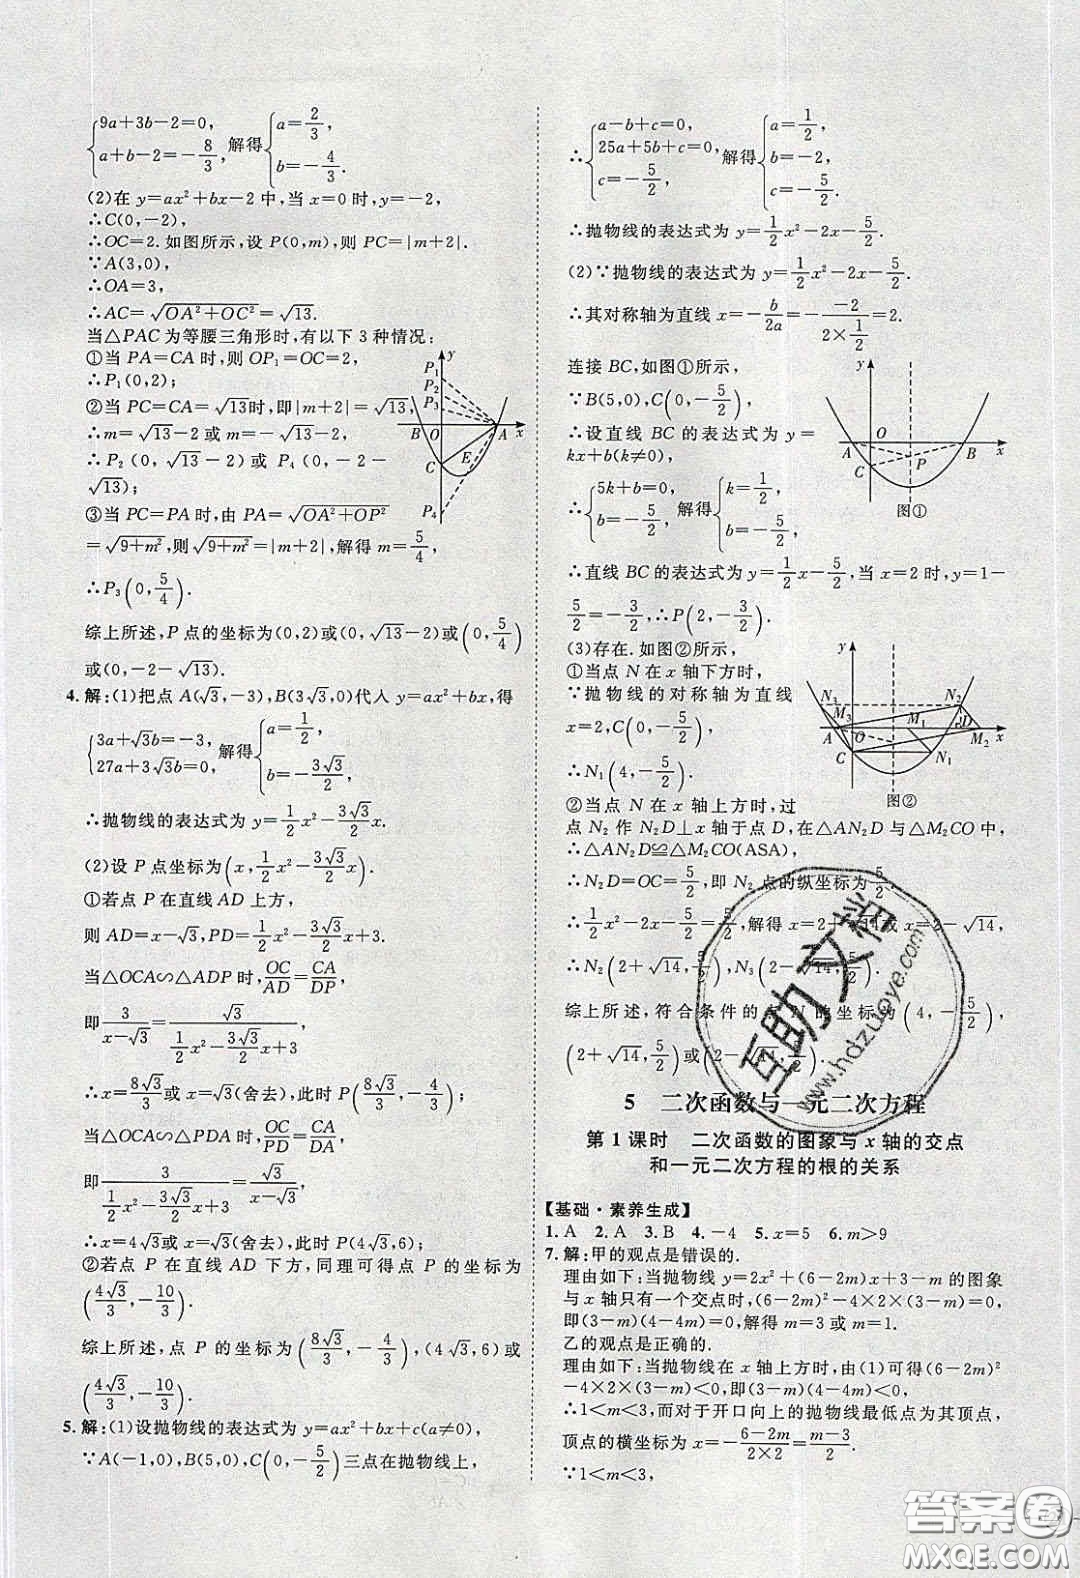 {9a+3b-2=0, a+b-2=-8/3, 解得{a=2/3, b=-4/3.
(2)在 y=ax²+bx-2 中,当 x=0 时,y=-2,
∴C(0,-2),
∴OC=2.如图所示,设 P(0,m),则 PC=|m+2|.
∵A(3,0),
∴OA=3,
∴AC=√(OA²+OC²)=√13.
当△PAC 为等腰三角形时,有以下 3 种情况:
①当 PA=CA 时,则 OP₁=OC=2,
∴P₁(0,2);
②当 PC=CA=√13时,即|m+2|=√13,
∴m=√13-2 或 m=-√13-2,
∴P₂(0,√13-2)或 P₄(0,-2-
√13);
③当 PC=PA 时,由 PA=√(OA²+OP²)
=√(9+m²),则√(9+m²)=|m+2|,解得 m=5/4,
∴P₃(0,5/4).
综上所述,P 点的坐标为(0,2)或(0,√13-2)或(0,5/4)
或(0,-2-√13).
y
P₁
P₂
P₃
B O A x
C E
P₄
4.解:(1)把点 A(√3,-3),B(3√3,0)代入 y=ax²+bx,得
{3a+√3b=-3, 27a+3√3b=0, 解得{a=1/2, b=-3√3/2,
∴抛物线的表达式为 y=1/2x²-3√3/2x.
(2)设 P 点坐标为(x,1/2x²-3√3/2x).
①若点 P 在直线 AD 上方,
则 AD=x-√3,PD=1/2x²-3√3/2x+3.
当△OCA∽△ADP 时,OC/AD=CA/DP,
即3/(x-√3)=√3/(1/2x²-3√3/2x+3),
∴x=8√3/3或 x=√3(舍去),此时 P(8√3/3,-4/3);
当△OCA∽△PDA 时,OC/PD=CA/DA,
即3/(1/2x²-3√3/2x+3)=√3/(x-√3),
∴x=4√3或 x=√3(舍去),此时 P(4√3,6);
②若点 P 在直线 AD 下方,同理可得点 P 的坐标为
(4√3/3,-10/3).
综上所述,点 P 的坐标为(8√3/3,-4/3),(4√3,6)或
(4√3/3,-10/3).
5.解:(1)设抛物线的表达式为 y=ax²+bx+c(a≠0),
∵A(-1,0),B(5,0),C(0,-5/2)三点在抛物线上,
∴{a-b+c=0, 25a+5b+c=0, c=-5/2, 解得{a=1/2, b=-2, c=-5/2.
∴抛物线的表达式为 y=1/2x²-2x-5/2.
(2)∵抛物线的表达式为 y=1/2x²-2x-5/2.
∴其对称轴为直线 x=-b/2a=--2/(2×1/2)=2.
连接 BC,如图①所示,
∵B(5,0),C(0,-5/2),
∴设直线 BC 的表达式为 y=
kx+b(k≠0),
∴{5k+b=0, b=-5/2, 解得{k=1/2, b=-5/2,
y
O
A B x
C P
图①
∴直线 BC 的表达式为 y=1/2x-5/2,当 x=2 时,y=1-
5/2=-3/2,∴P(2,-3/2).
(3)存在.如图②所示,
①当点 N 在 x 轴下方时,
∵抛物线的对称轴为直线
x=2,C(0,-5/2),
∴N₁(4,-5/2).
y
N₃ N₂
M₃ M₁ D
A O M₂ x
C N₁
图②
②当点 N 在 x 轴上方时,过
点 N₂ 作 N₂D⊥x 轴于点 D,在△AN₂D 与△M₂CO 中,
∴△AN₂D≌△M₂CO(ASA),
∴N₂D=OC=5/2,即 N₂ 点的纵坐标为5/2.
∴1/2x²-2x-5/2=5/2,解得 x=2+√14或 x=2-√14,
∴N₂(2+√14,5/2),N₃(2-√14,5/2).
综上所述,符合条件的点 N 的坐标为(4,-5/2),
(2+√14,5/2)或(2-√14,5/2).
5 二次函数与一元二次方程
第 1 课时 二次函数的图象与 x 轴的交点
和一元二次方程的根的关系
【基础·素养生成】
1.A 2.A 3.B 4.-4 5.x=5 6.m>9
7.解:甲的观点是错误的.
理由如下:当抛物线 y=2x²+(6-2m)x+3-m 的图象
与 x 轴只有一个交点时,(6-2m)²-4×2×(3-m)=0,
即(3-m)(4-4m)=0,解得 m=3或 m=1.
乙的观点是正确的.
理由如下:当抛物线在 x 轴上方时,由(1)可得(6-2m)²
-4×2×(3-m)<0,即(3-m)(4-4m)<0,
∴1<m<3,而对于开口向上的抛物线最低点为其顶点,
顶点的横坐标为 x=-(6-2m)/(2×2)=(m-3)/2.
∵1<m<3,
互助文档
www.hdzuoye.com
答案圈
MXQE.COM